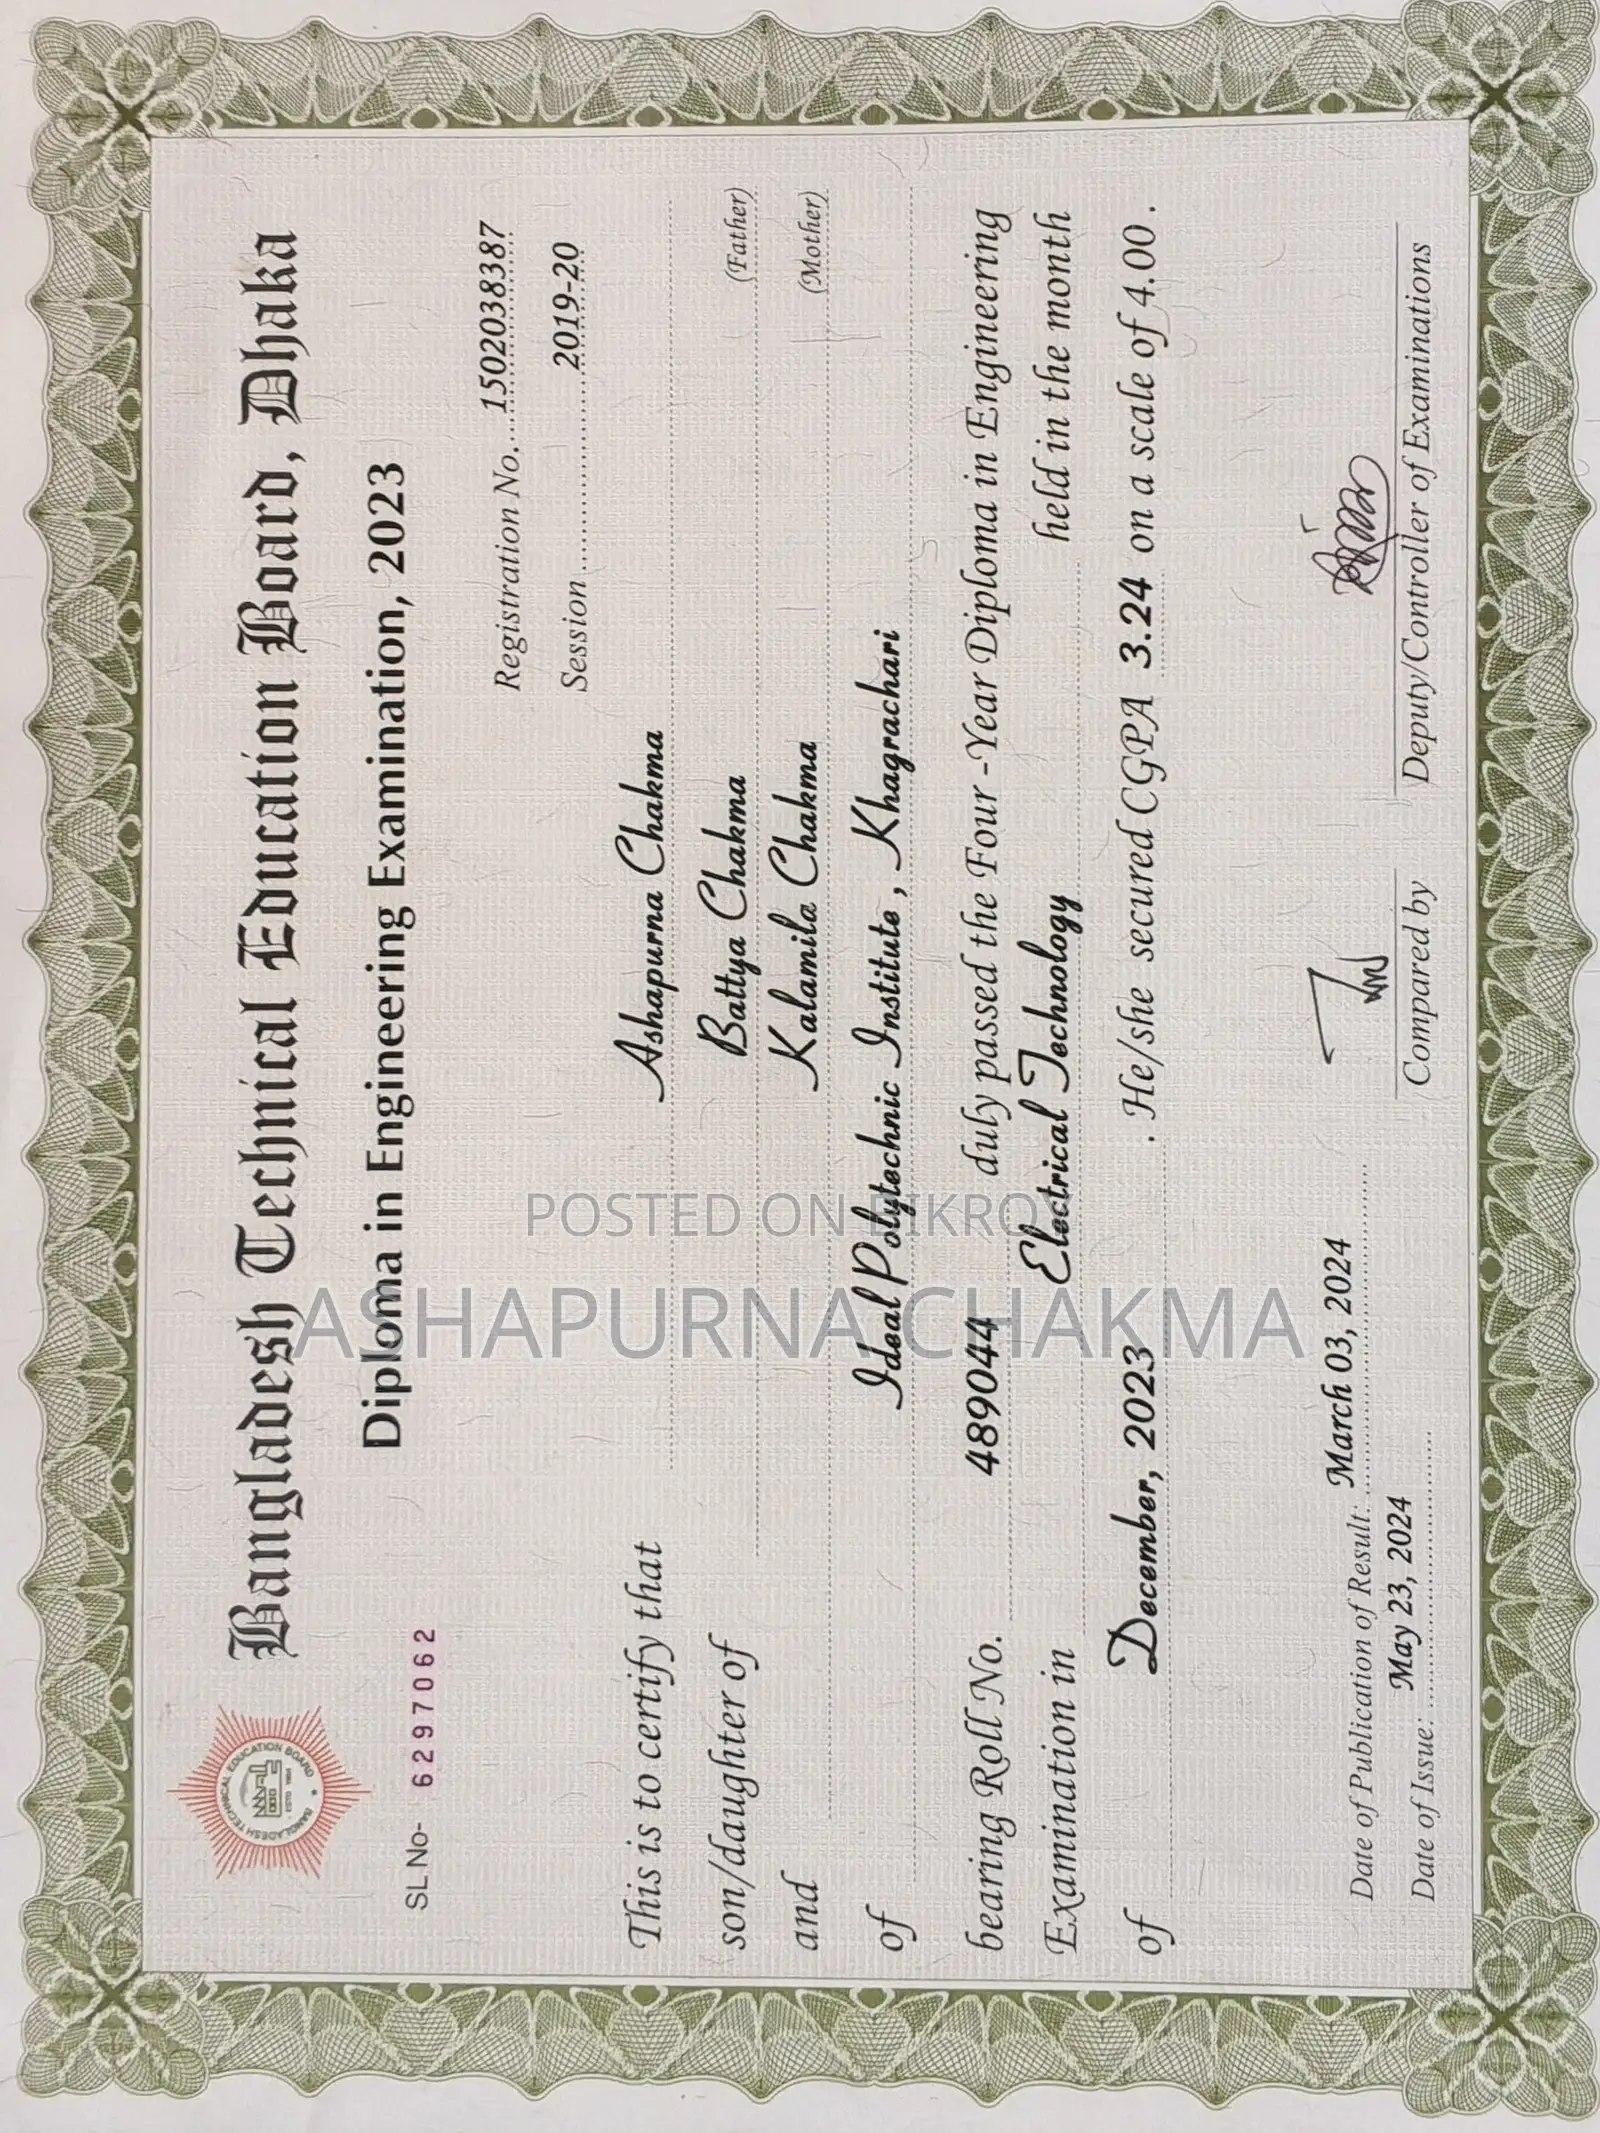 Bangladesh Technical Education Board, Dhaka
Diploma in Engineering Examination, 2023
BANGLADESH TECHNICAL EDUCATION BOARD
ESTD 1954
SL No- 6297062
Registration No. 1502038387
Session 2019-20
This is to certify that Ashapurna Chakma
son/daughter of Battya Chakma (Father)
and Kalamila Chakma (Mother)
of Ideal Polytechnic Institute, Khagrachari
bearing Roll No. 489044 duly passed the Four -Year Diploma in Engineering
Examination in Electrical Technology held in the month
of December, 2023 . He/she secured CGPA 3.24 on a scale of 4.00 .
Date of Publication of Result: March 03, 2024
Date of Issue: May 23, 2024
Compared by
Deputy/Controller of Examinations
POSTED ON BIKROY
ASHAPURNA CHAKMA